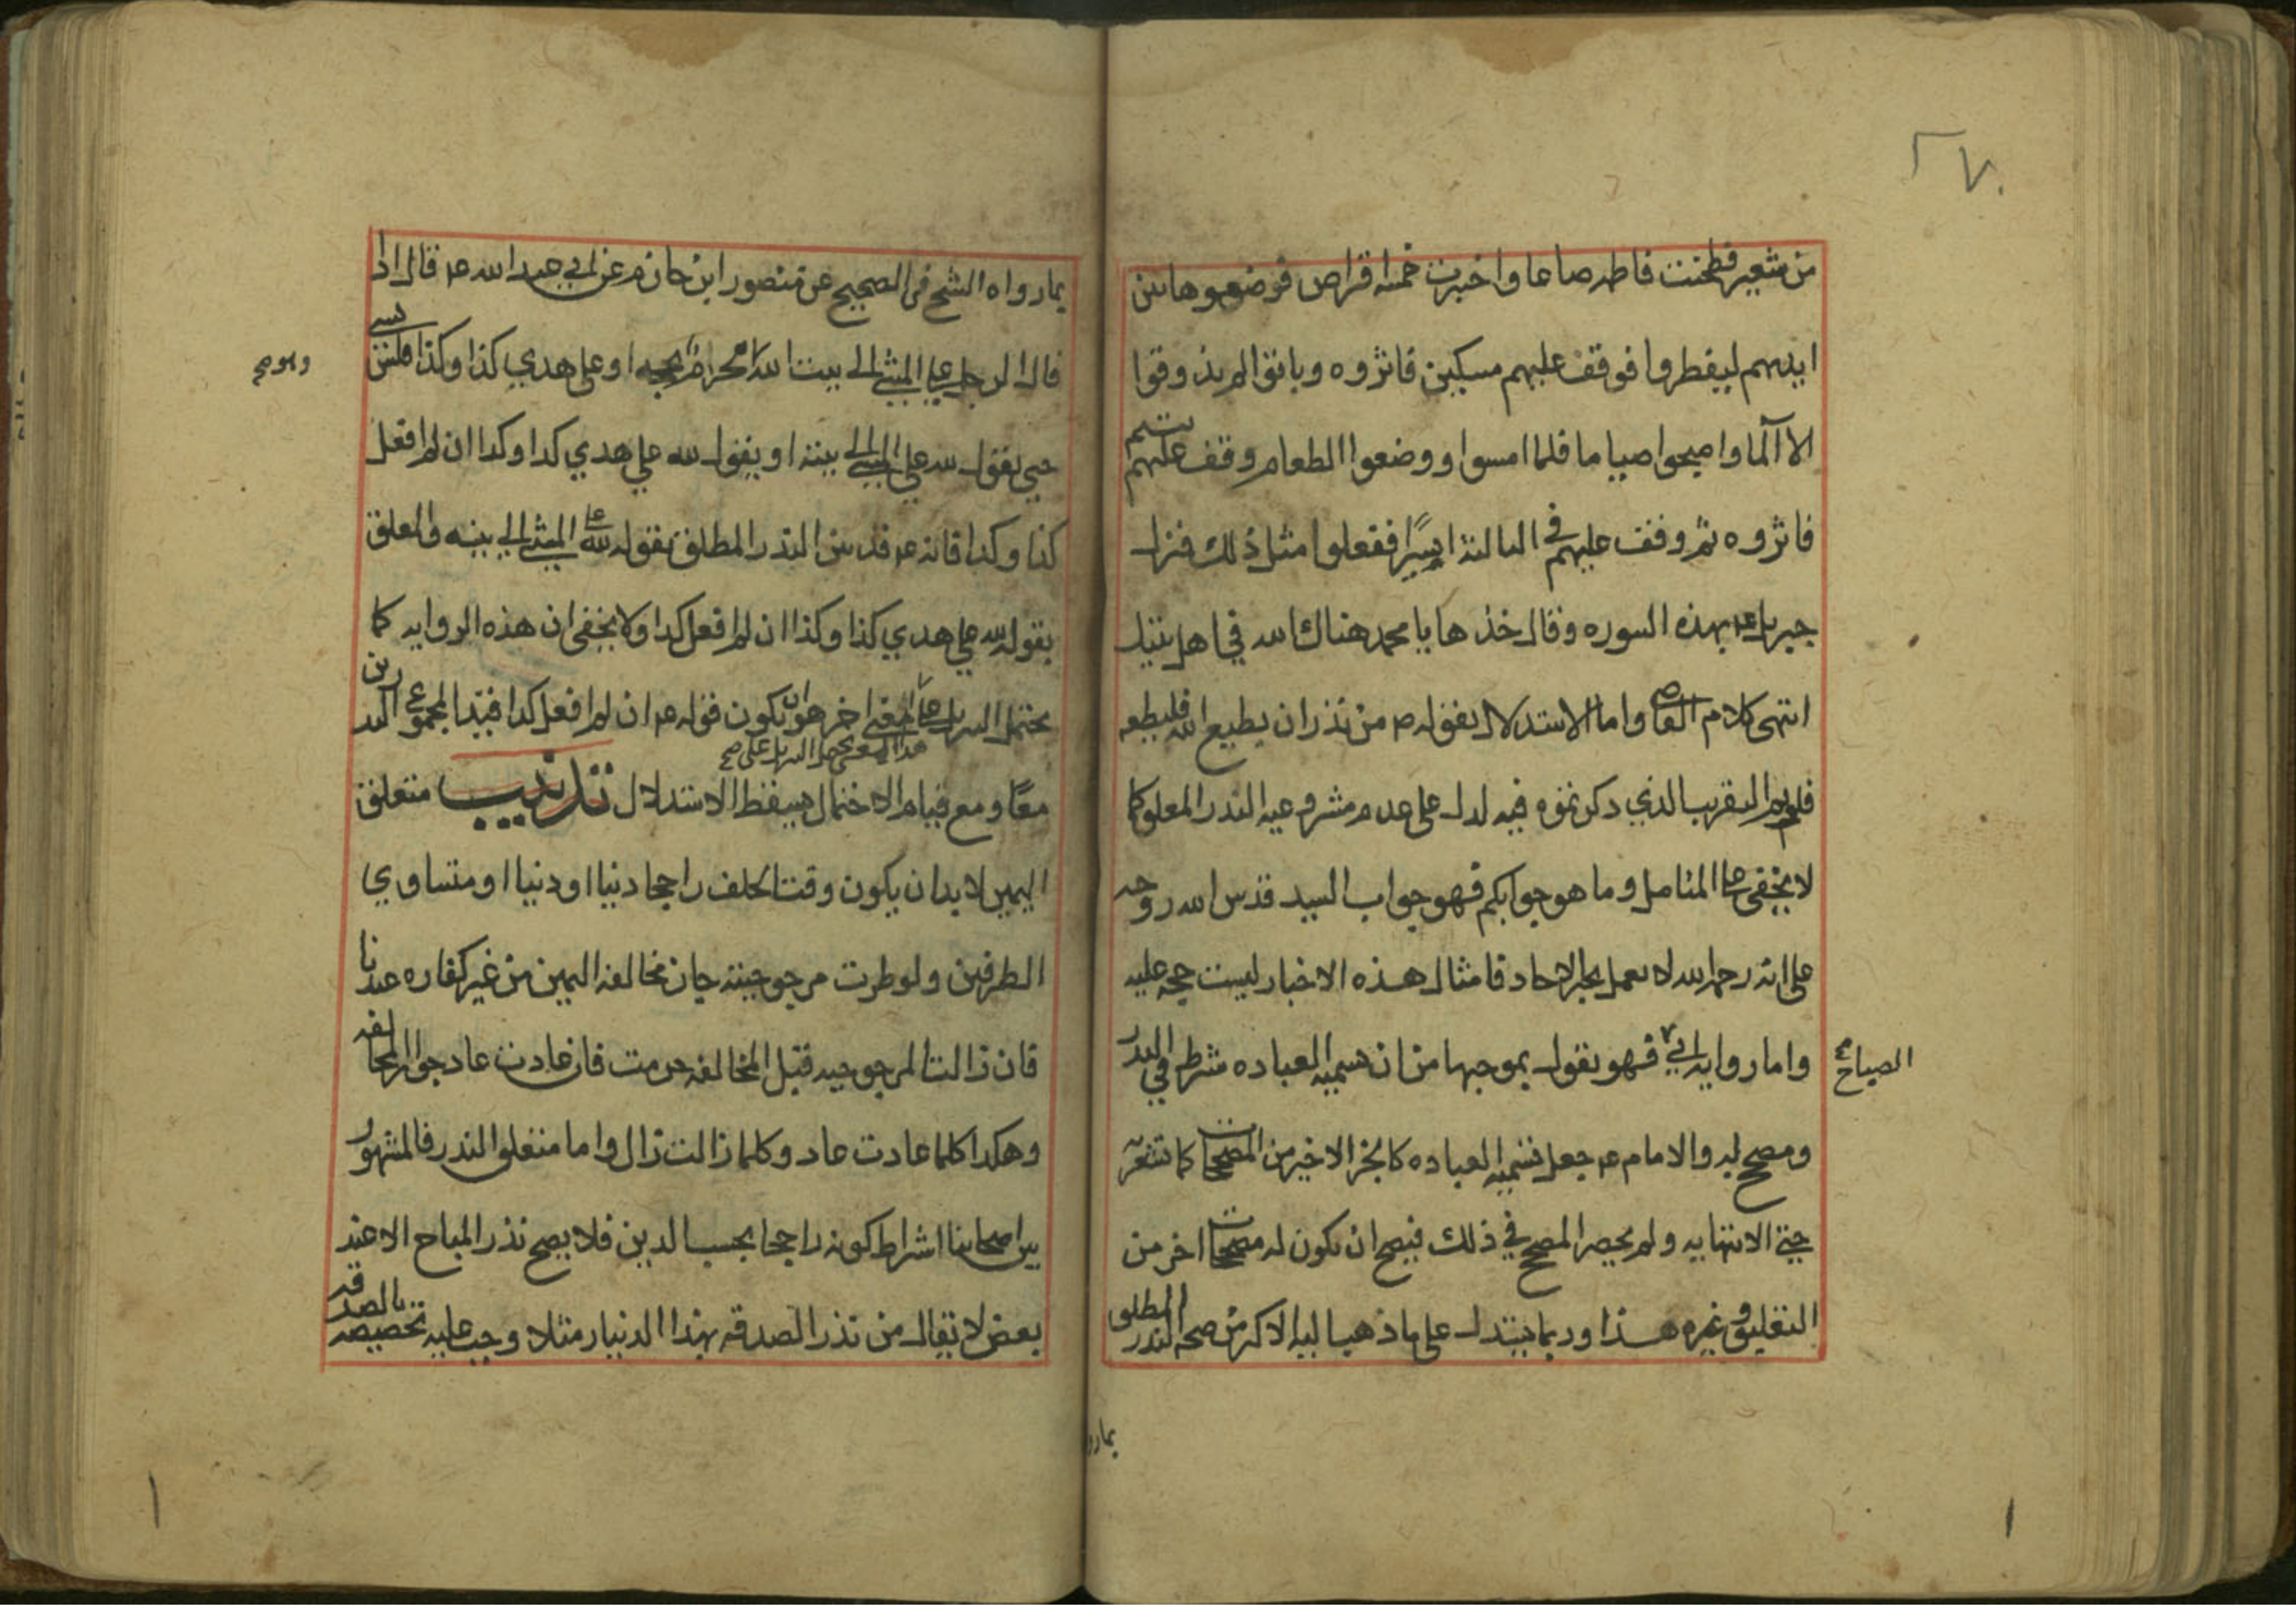 ٢٧٠
من شعير فطحنت فاطمه صاعا واخبزت خمسه اقراص فوضعوها بين
ايديهم ليفطروا فوقف عليهم مسكين فاثروه وباتوا لم يذوقوا
الا الما واصبحوا صياما فلما امسوا ووضعوا الطعام وقف عليهم يتيم
فاثروه ثم وقف عليهم في الثالثة اسيرا ففعلوا مثل ذلك فنزل
جبريل ع بهذه السوره وقال خذها يا محمد هناك الله في اهل بيتك
انتهى كلام القاضي واما الاستدلال بقوله ص من نذر ان يطيع الله فليطعه
التقريب الذي ذكرتموه فيه لدل على عدم مشروعيه النذر المعلق كما
لا يخفى على المتامل وما هو جوابكم فهو جواب السيد قدس الله روحه
على انه رحمه الله لا يعمل بخبر الاحاد فامثال هذه الاخبار ليست حجه عليه
واما روايه ابي فهو يقول بموجبها من ان تسميه العباده شرط في النذر
الصباح
ومصحح له والامام ع جعل تسميه العباده كالجزء الاخير من المصححات كما تشعر به
حتى الانتهائيه ولم يحصر المصحح في ذلك فيصح ان يكون له مصححات اخر من
التعليق وغيره هذا وربما يستدل على ما ذهب اليه الاكثر من صحه النذر المطلق
بمارو
بمارواه الشيخ في الصحيح عن منصور ابن حازم عن ابي عبد الله ع قال اذا
قال الرجل علي المشي الى بيت الله وهو محرم بحجه او علي هدي كذا وكذا فليس بشيء
وهو صح
حتى يقول لله علي المشي الى بيته او يقول لله علي هدي كذا وكذا ان لم افعل
كذا وكذا فانه ع قد بين النذر المطلق بقوله لله علي المشي الى بيته والمعلق
بقوله لله علي هدي كذا وكذا ان لم افعل كذا ولا يخفى ان هذه الروايه كما
يحتمل التنزيل على معنى اخر هو ان يكون قوله ع ان لم افعل كذا قيدا لمجموع النذرين
هذا المعنى يحتمل التنزيل على صح
معا ومع قيام الاحتمال يسقط الاستدلال تذنيب متعلق
اليمين لا بد ان يكون وقت الحلف راجحا دينا او دنيا او متساوي
الطرفين ولو طرت مرجوحيته جاز مخالفه اليمين من غير كفاره عندنا
فان زالت المرجوحيه قبل المخالفه حرمت فان عادت عاد جواز المخالفه
وهكذا كلما عادت عاد وكلما زالت زال واما متعلق النذر فالمشهور
بين اصحابنا اشراط كونه راجحا بحسب الدين فلا يصح نذر المباح الا عند
بعض لا يقال من نذر الصدقه بهذا الدينار مثلا وجب عليه تخصيصه بالصدقه